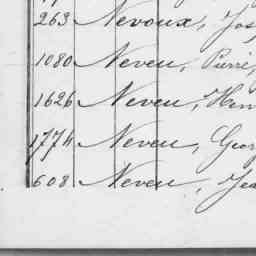 263 Nevoux, Jos
1080 Neveu, Pierre,
1626 Neveu, Hen
1774 Neveu, Geor
608 Neveu, Jea